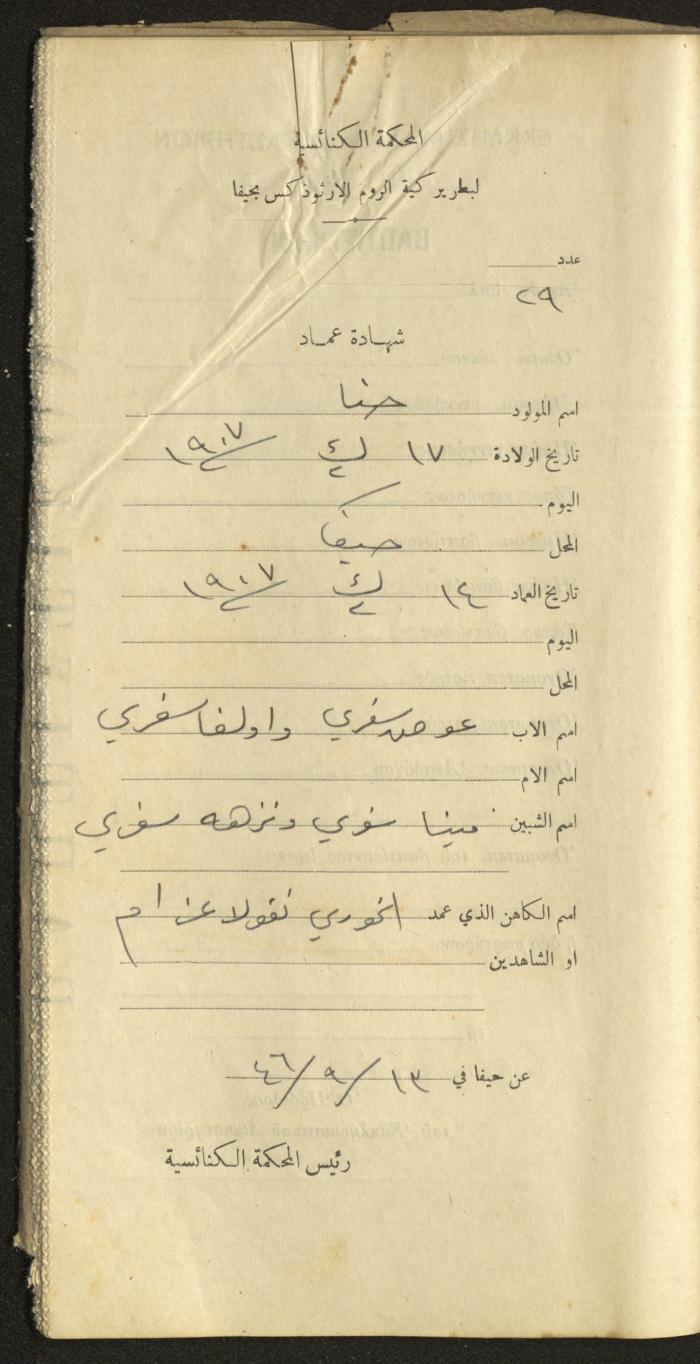 المحكمة الكنائسية
لبطريركية الروم الارثوذكس بحيفا
عدد
٢٩
شهادة عماد
اسم المولود حنا
تاريخ الولادة ١٧ ك٢ ١٩٠٧
اليوم
المحل حيفا
تاريخ العماد ١٤ ١٩٠٧
اليوم
المحل
اسم الاب عوض سفري واولغا سفري
اسم الام
اسم الشبين مينا سفري ونزهه سفري
اسم الكاهن الذي عمد الخوري نقولا عزام
او الشاهدين
عن حيفا في ١٣/٩/٤٦
رئيس المحكمة الكنائسية